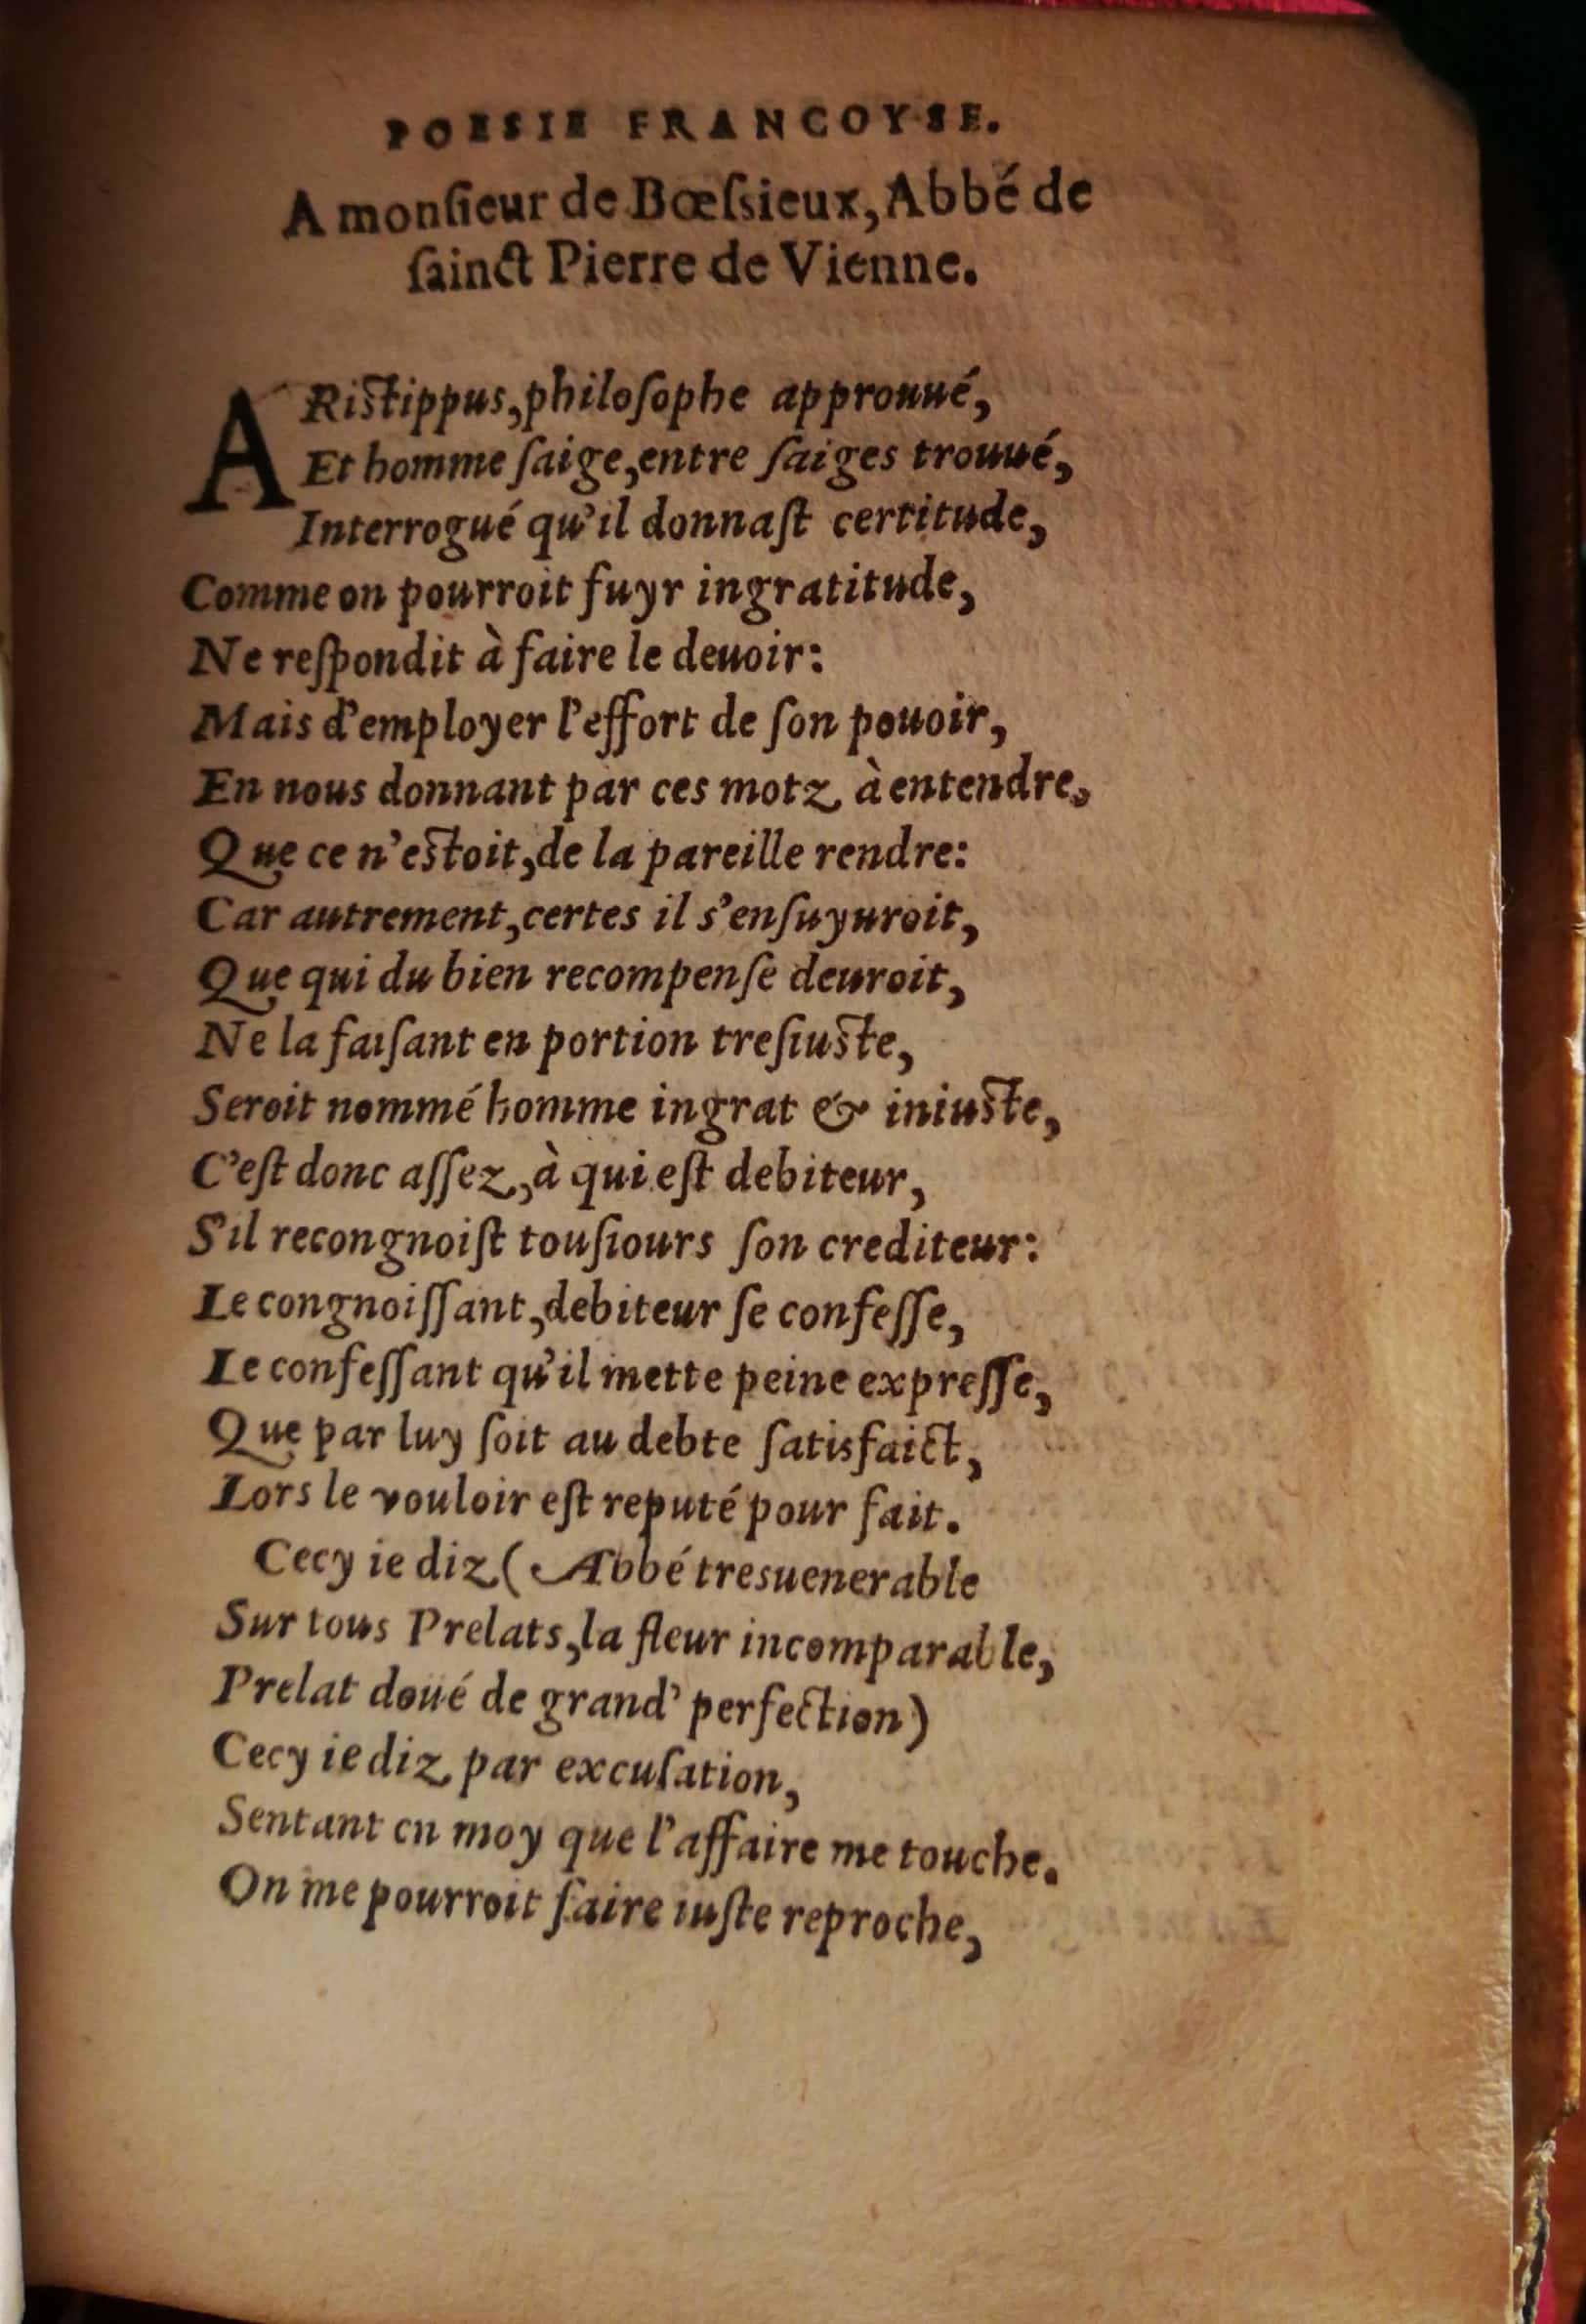 POESIE FRANCOYSE.
A monſieur de Bœſsieux, Abbé de
ſainct Pierre de Vienne.
ARiſtippus, philoſophe approuué,
Et homme ſaige, entre ſaiges trouué,
Interrogué qu'il donnaſt certitude,
Comme on pourroit fuyr ingratitude,
Ne reſpondit à faire le deuoir:
Mais d'employer l'effort de ſon pouoir,
En nous donnant par ces motz à entendre,
Que ce n'eſtoit, de la pareille rendre:
Car autrement, certes il s'enſuyuroit,
Que qui du bien recompenſe deuroit,
Ne la faiſant en portion treſiuſte,
Seroit nommé homme ingrat & iniuſte,
C'eſt donc aſſez, à qui eſt debiteur,
S'il recongnoiſt touſiours ſon crediteur:
Le congnoiſſant, debiteur ſe confeſſe,
Le confeſſant qu'il mette peine expreſſe,
Que par luy ſoit au debte ſatisfaict,
Lors le vouloir eſt reputé pour fait.
Cecy ie diz (Abbé tresuenerable
Sur tous Prelats, la fleur incomparable,
Prelat doüé de grand' perfection)
Cecy ie diz par excuſation,
Sentant en moy que l'affaire me touche.
On me pourroit faire iuſte reproche,